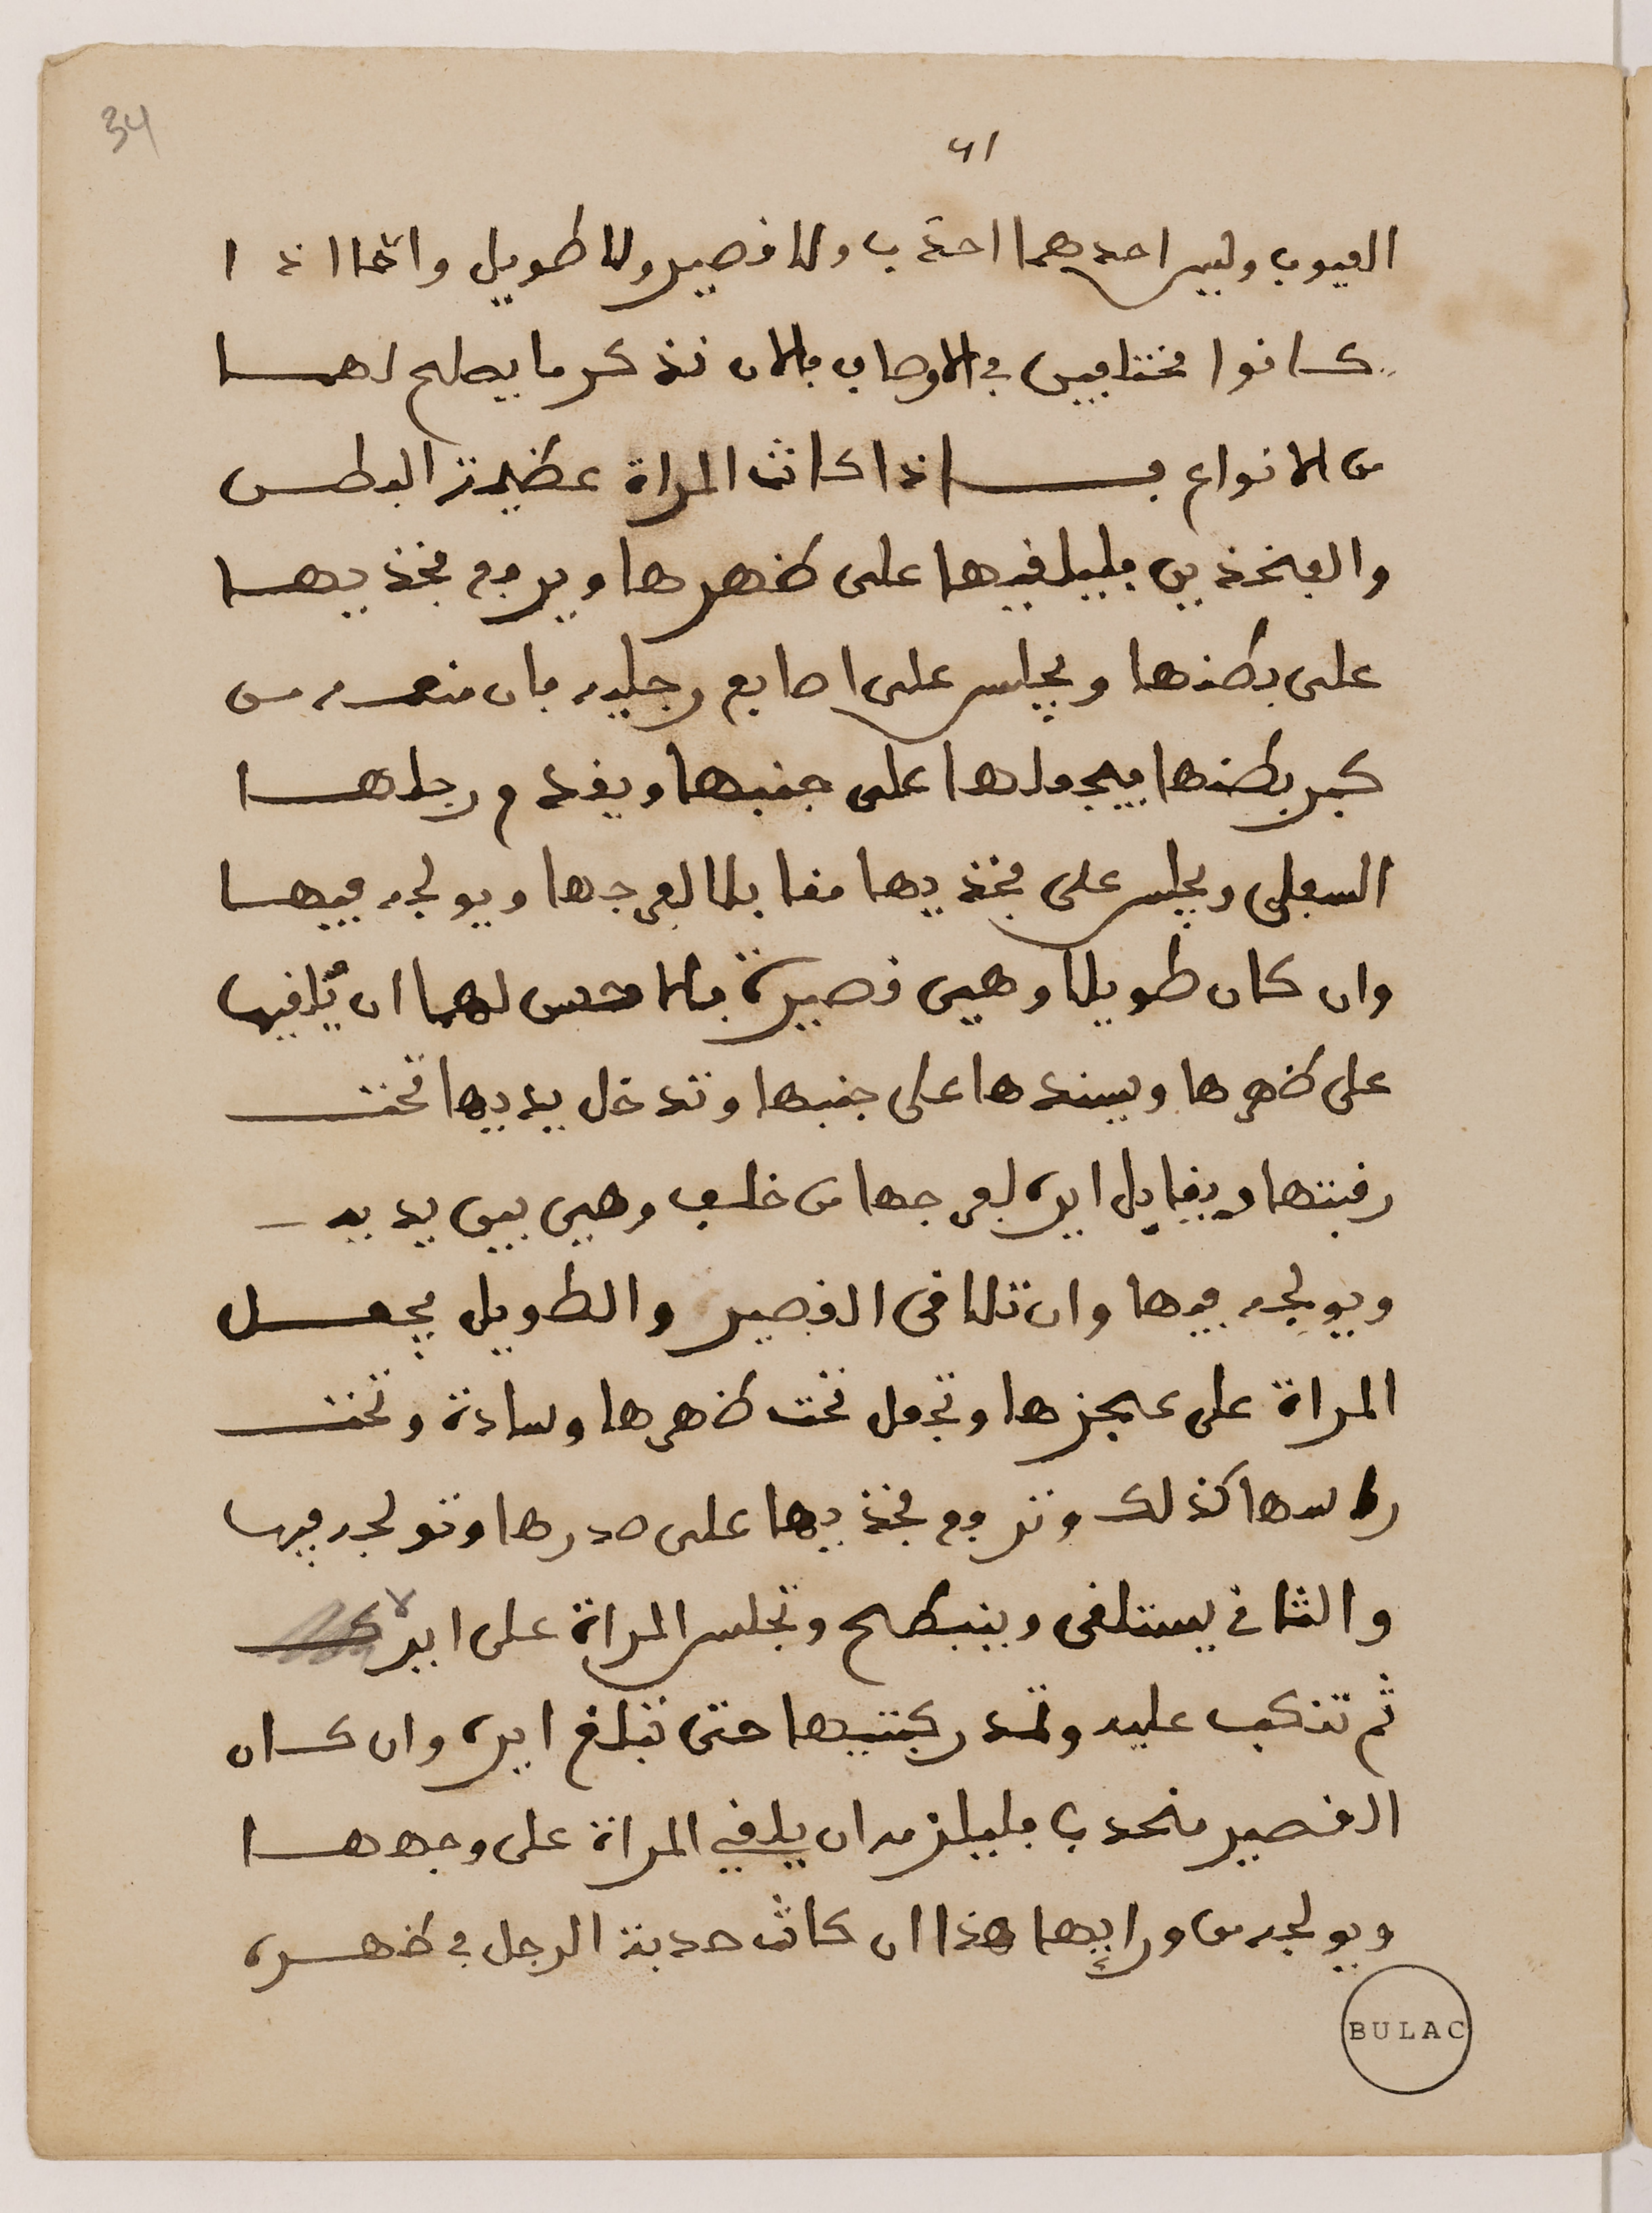 34
41
العيوب وليس احدهما احدب ولا قصير ولا طويل وانما اذا
كانوا مختلفين في الاوصاف فالان نذكر ما يصلح لهما
من الانواع فـــاذا كانت المراة عظيمة البطن
والفخذين فليلقيها على ظهرها ويرفع فخذيها
على بطنها ويجلس على اصابع رجليه فان منعه من
كبر بطنها فيجعلها على جنبها ويقدم رجلها
السفلى ويجلس على فخذيها مقابلا لفرجها ويولجه فيها
وان كان طويلا وهي قصيرة فالاحسن لهما ان يُلقيها
على ظهرها ويسندها على جنبها وتدخل يديها تحت
رقبتها ويقابل ايره لفرجها من خلف وهي بين يديه
ويولجه فيها وان تلاقى القصير والطويل يجعل
المراة على عجزها وتجعل تحت ظهرها وسادة وتحت
راسها كذلك وترفع فخذيها على صدرها وتولجه فيها
والثاني يستلقى وينبطح وتجلس المراة على ايره
ثم تنكب عليه وتمد ركبتيها حتى تبلغ ايره وان كان
القصير منحدب فليلزمه ان يلقي المراة على وجهها
ويولجه من ورايها هذا ان كانت حدبة الرجل في ظهره
BULAC